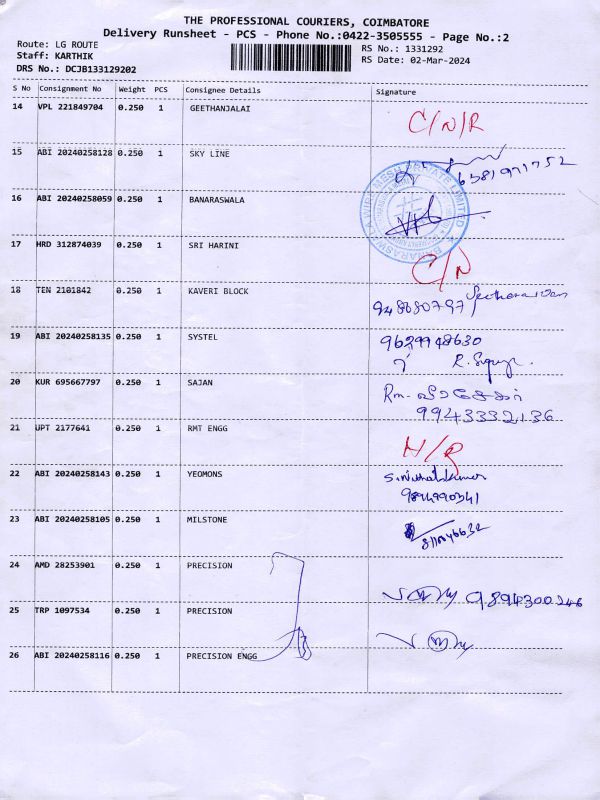 THE PROFESSIONAL COURIERS, COIMBATORE
Delivery Runsheet - PCS - Phone No.:0422-3505555 - Page No.:2
Route: LG ROUTE
RS No.: 1331292
Staff: KARTHIK
RS Date: 02-Mar-2024
DRS No.: DCJB133129202
S No Consignment No Weight PCS Consignee Details Signature
14 VPL 221849704 0.250 1 GEETHANJALAI C/N/R
15 ABI 20240258128 0.250 1 SKY LINE 6381971752
16 ABI 20240258059 0.250 1 BANARASWALA
17 HRD 312874039 0.250 1 SRI HARINI C/N
18 TEN 2101842 0.250 1 KAVERI BLOCK
19 ABI 20240258135 0.250 1 SYSTEL 9629948630
20 KUR 695667797 0.250 1 SAJAN
9943332136
21 UPT 2177641 0.250 1 RMT ENGG N/R
22 ABI 20240258143 0.250 1 YEOMONS
23 ABI 20240258105 0.250 1 MILSTONE
24 AMD 28253901 0.250 1 PRECISION 9894300246
25 TRP 1097534 0.250 1 PRECISION
26 ABI 20240258116 0.250 1 PRECISION ENGG